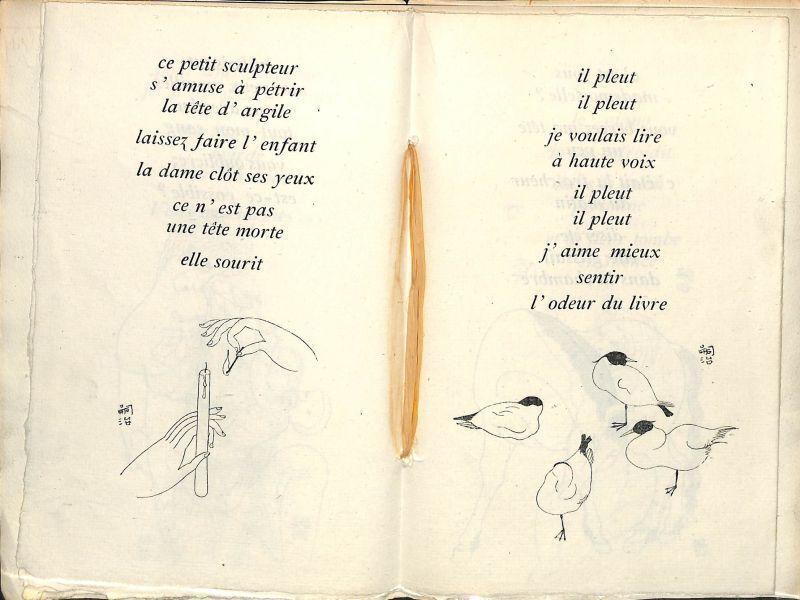 ce petit sculpteur
s'amuse à pétrir
la tête d'argile
laissez faire l'enfant
la dame clôt ses yeux
ce n'est pas
une tête morte
elle sourit
il pleut
il pleut
je voulais lire
à haute voix
il pleut
il pleut
j'aime mieux
sentir
l'odeur du livre